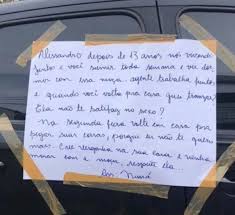 Alessandro depois de 13 anos nós vivendo
juntos e você sair toda semana e vai dor
mir com essa moça. agente trabalha juntos
e quando você volta pra casa quer transar?
Ela não te satisfaz no sexo?
Na segunda feira volte em casa pra
pegar suas coisas, porque eu não te quero
mais. Crie vergonha na sua cara e
com a moça, respeite ela